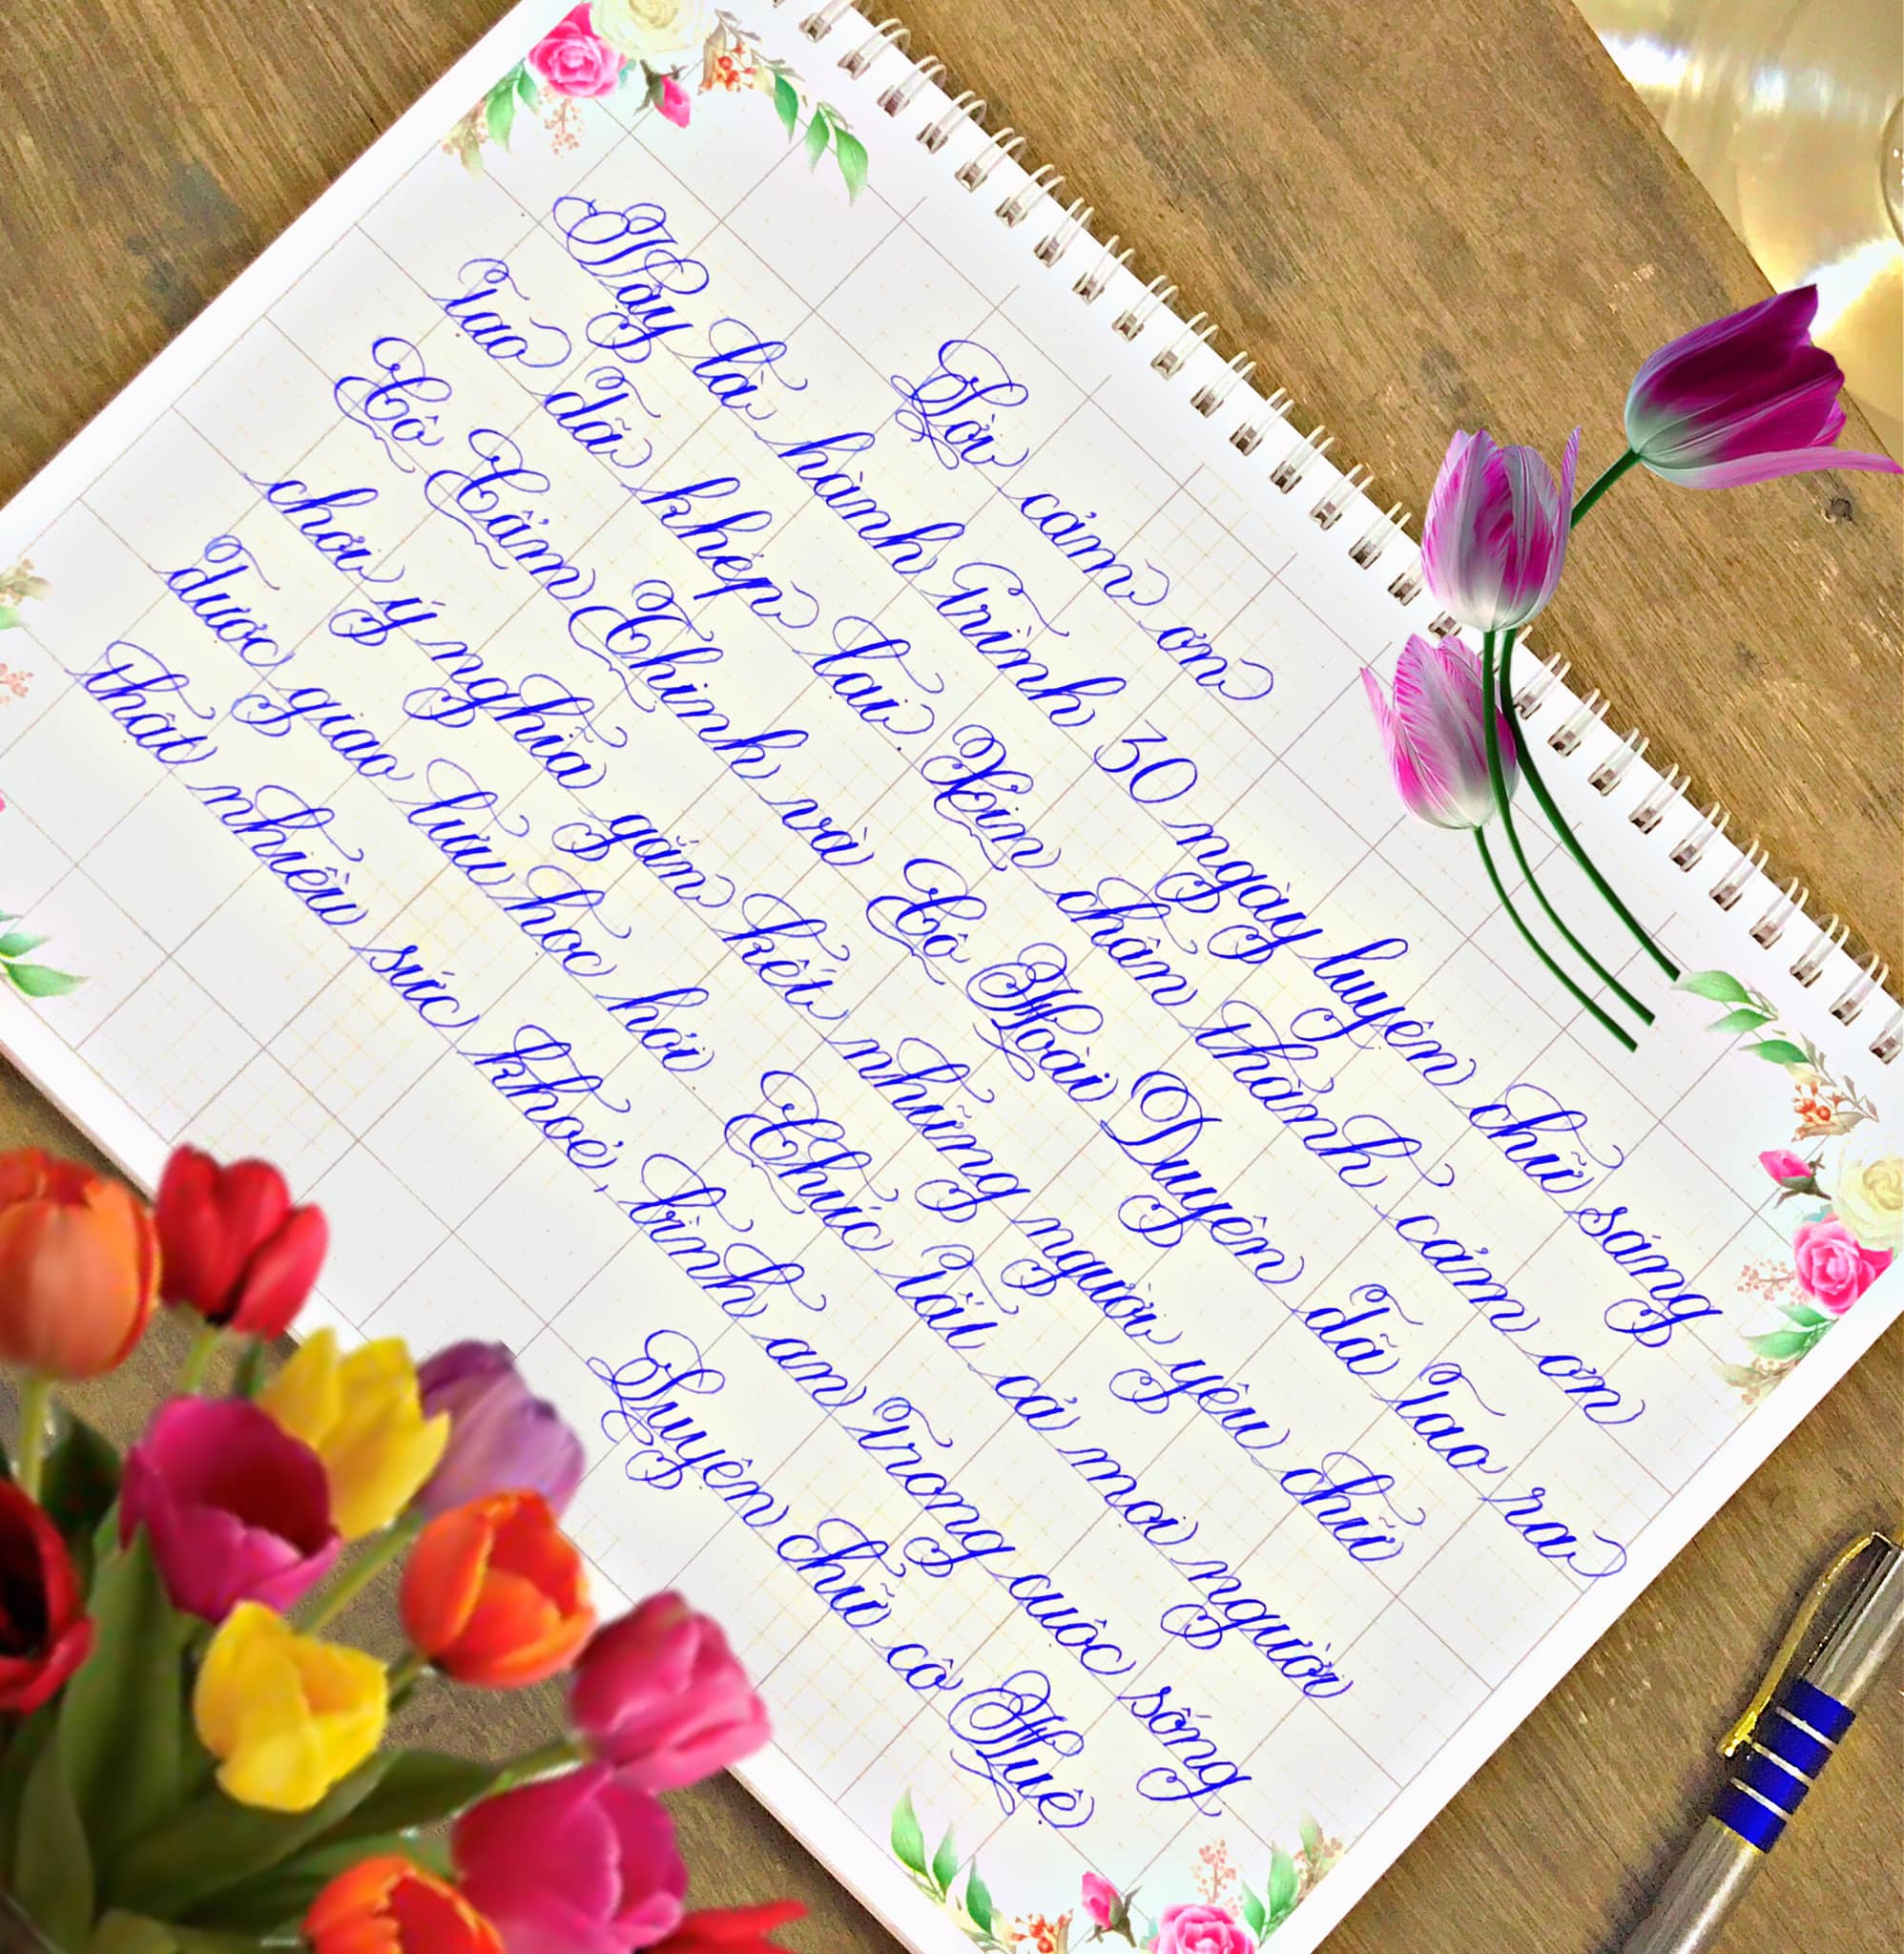 Lời cảm ơn
Vậy là hành trình 30 ngày luyện chữ sáng
tạo đã khép lại. Xin chân thành cảm ơn
Cô Cẩm Thinh và Cô Hoài Duyên đã tạo ra
sân chơi ý nghĩa gắn kết những người yêu chữ
được giao lưu học hỏi. Chúc tất cả mọi người
thật nhiều sức khoẻ, bình an trong cuộc sống
Luyện chữ cô Huê